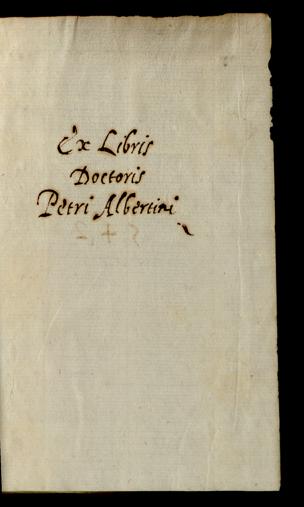 Ex Libris
Doctoris
Petri Albertini